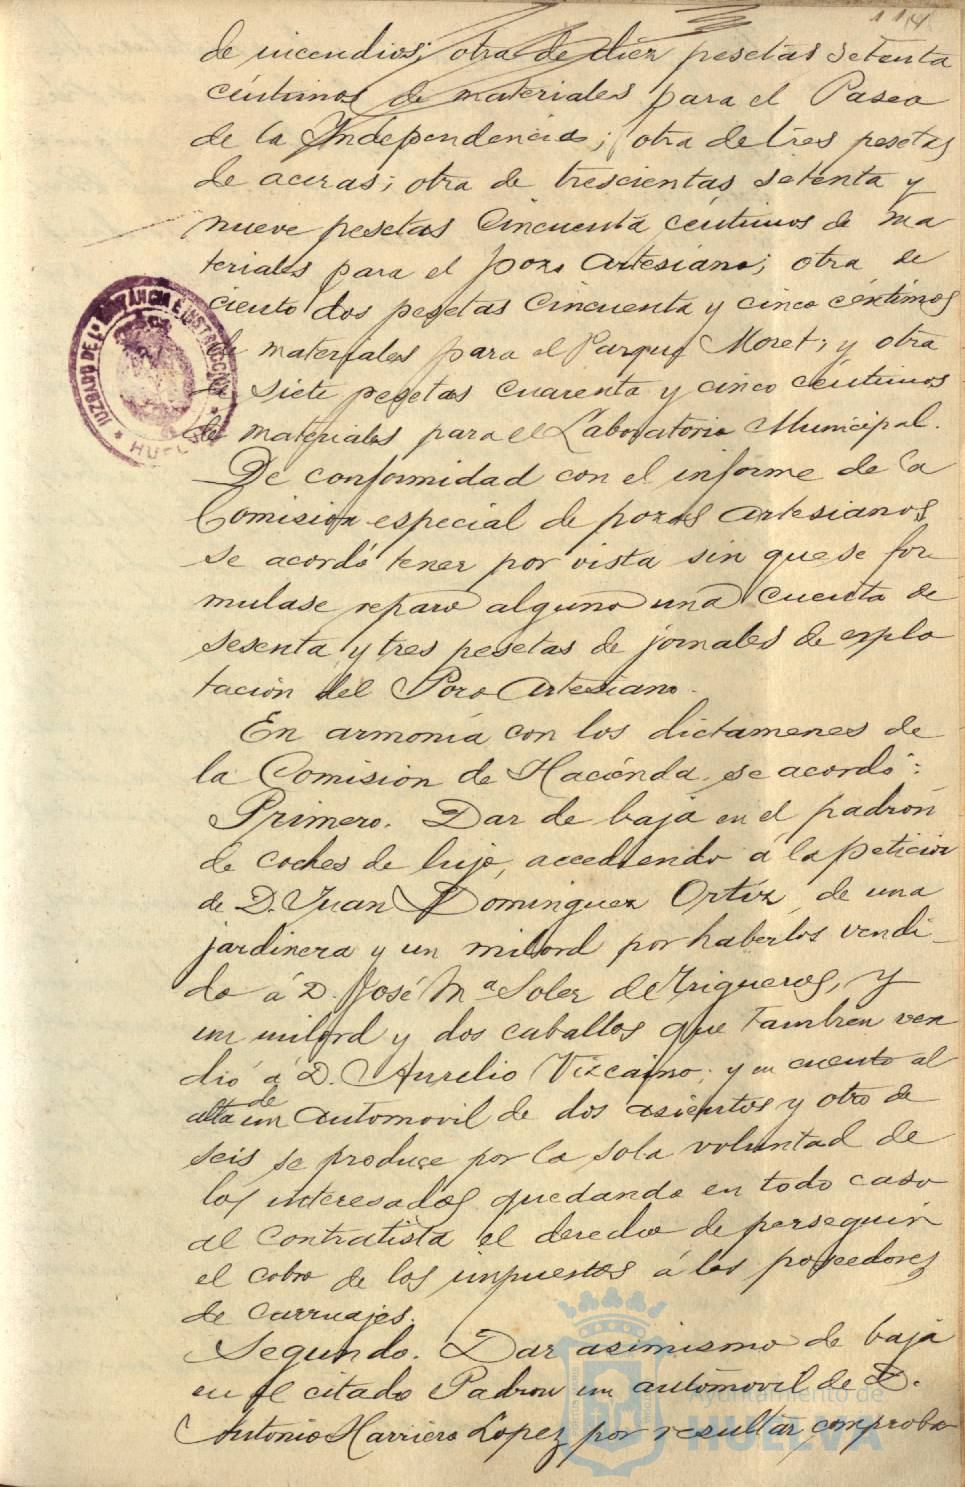 114
de incendios; otra de diez pesetas setenta
céntimos de materiales para el Paseo
de la Independencia; otra de tres pesetas
de aceras; otra de trescientas setenta y
nueve pesetas cincuenta céntimos de ma
teriales para el pozo artesiano; otra de
ciento dos pesetas cincuenta y cinco céntimos
de materiales para el Parque Moret; y otra
de siete pesetas cuarenta y cinco céntimos
de materiales para el Laboratorio Municipal.
De conformidad con el informe de la
Comision especial de pozos artesianos
se acordó tener por vista sin que se for
mulase reparo alguno una cuenta de
sesenta y tres pesetas de jornales de explo
tación del Pozo Artesiano.
En armonía con los dictamenes de
la Comision de Hacienda, se acordó:
Primero. Dar de baja en el padrón
de coches de lujo, accediendo á la peticion
de D. Juan Dominguez Ortiz, de una
jardinera y un milord por haberlos vendi-
do á D. José Mª Soler de Trigueros, y
un milord y dos caballos que tambien ven
dió á D. Aurelio Vizcaino; y en cuento al
alta de un automovil de dos asientos y otro de
seis se produce por la sola voluntad de
los interesados quedando en todo caso
al contratista el derecho de perseguir
el cobro de los impuestos á los poseedores
de carruajes.
Segundo. Dar asimismo de baja
en el citado Padron un automovil de D.
Antonio Harriero Lopez por resultar comproba
JUZGADO DE 1ª INSTANCIA E INSTRUCCIÓN
HUELVA
Ayuntamiento de
HUELVA